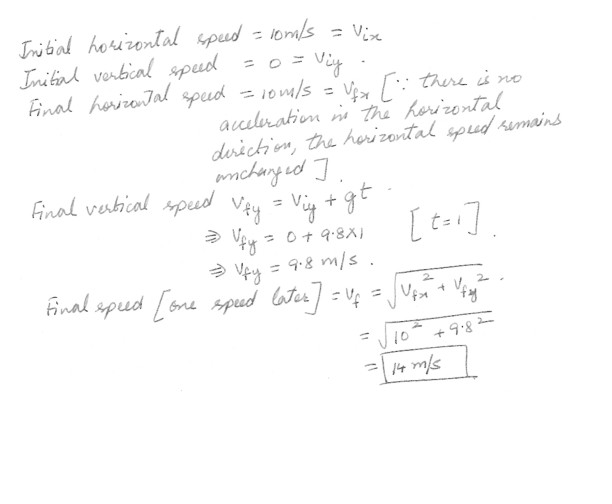 Initial horizontal speed = 10m/s = Vix
Initial vertical speed = 0 = Viy .
Final horizontal speed = 10m/s = Vfx [∵ there is no
acceleration in the horizontal
direction, the horizontal speed remains
unchanged ] .
Final vertical speed Vfy = Viy + gt .
⇒ Vfy = 0 + 9.8×1 [t=1] .
⇒ Vfy = 9.8 m/s .
Final speed [one speed later] = Vf = √Vfx² + Vfy² .
= √10² + 9.8²
= 14 m/s